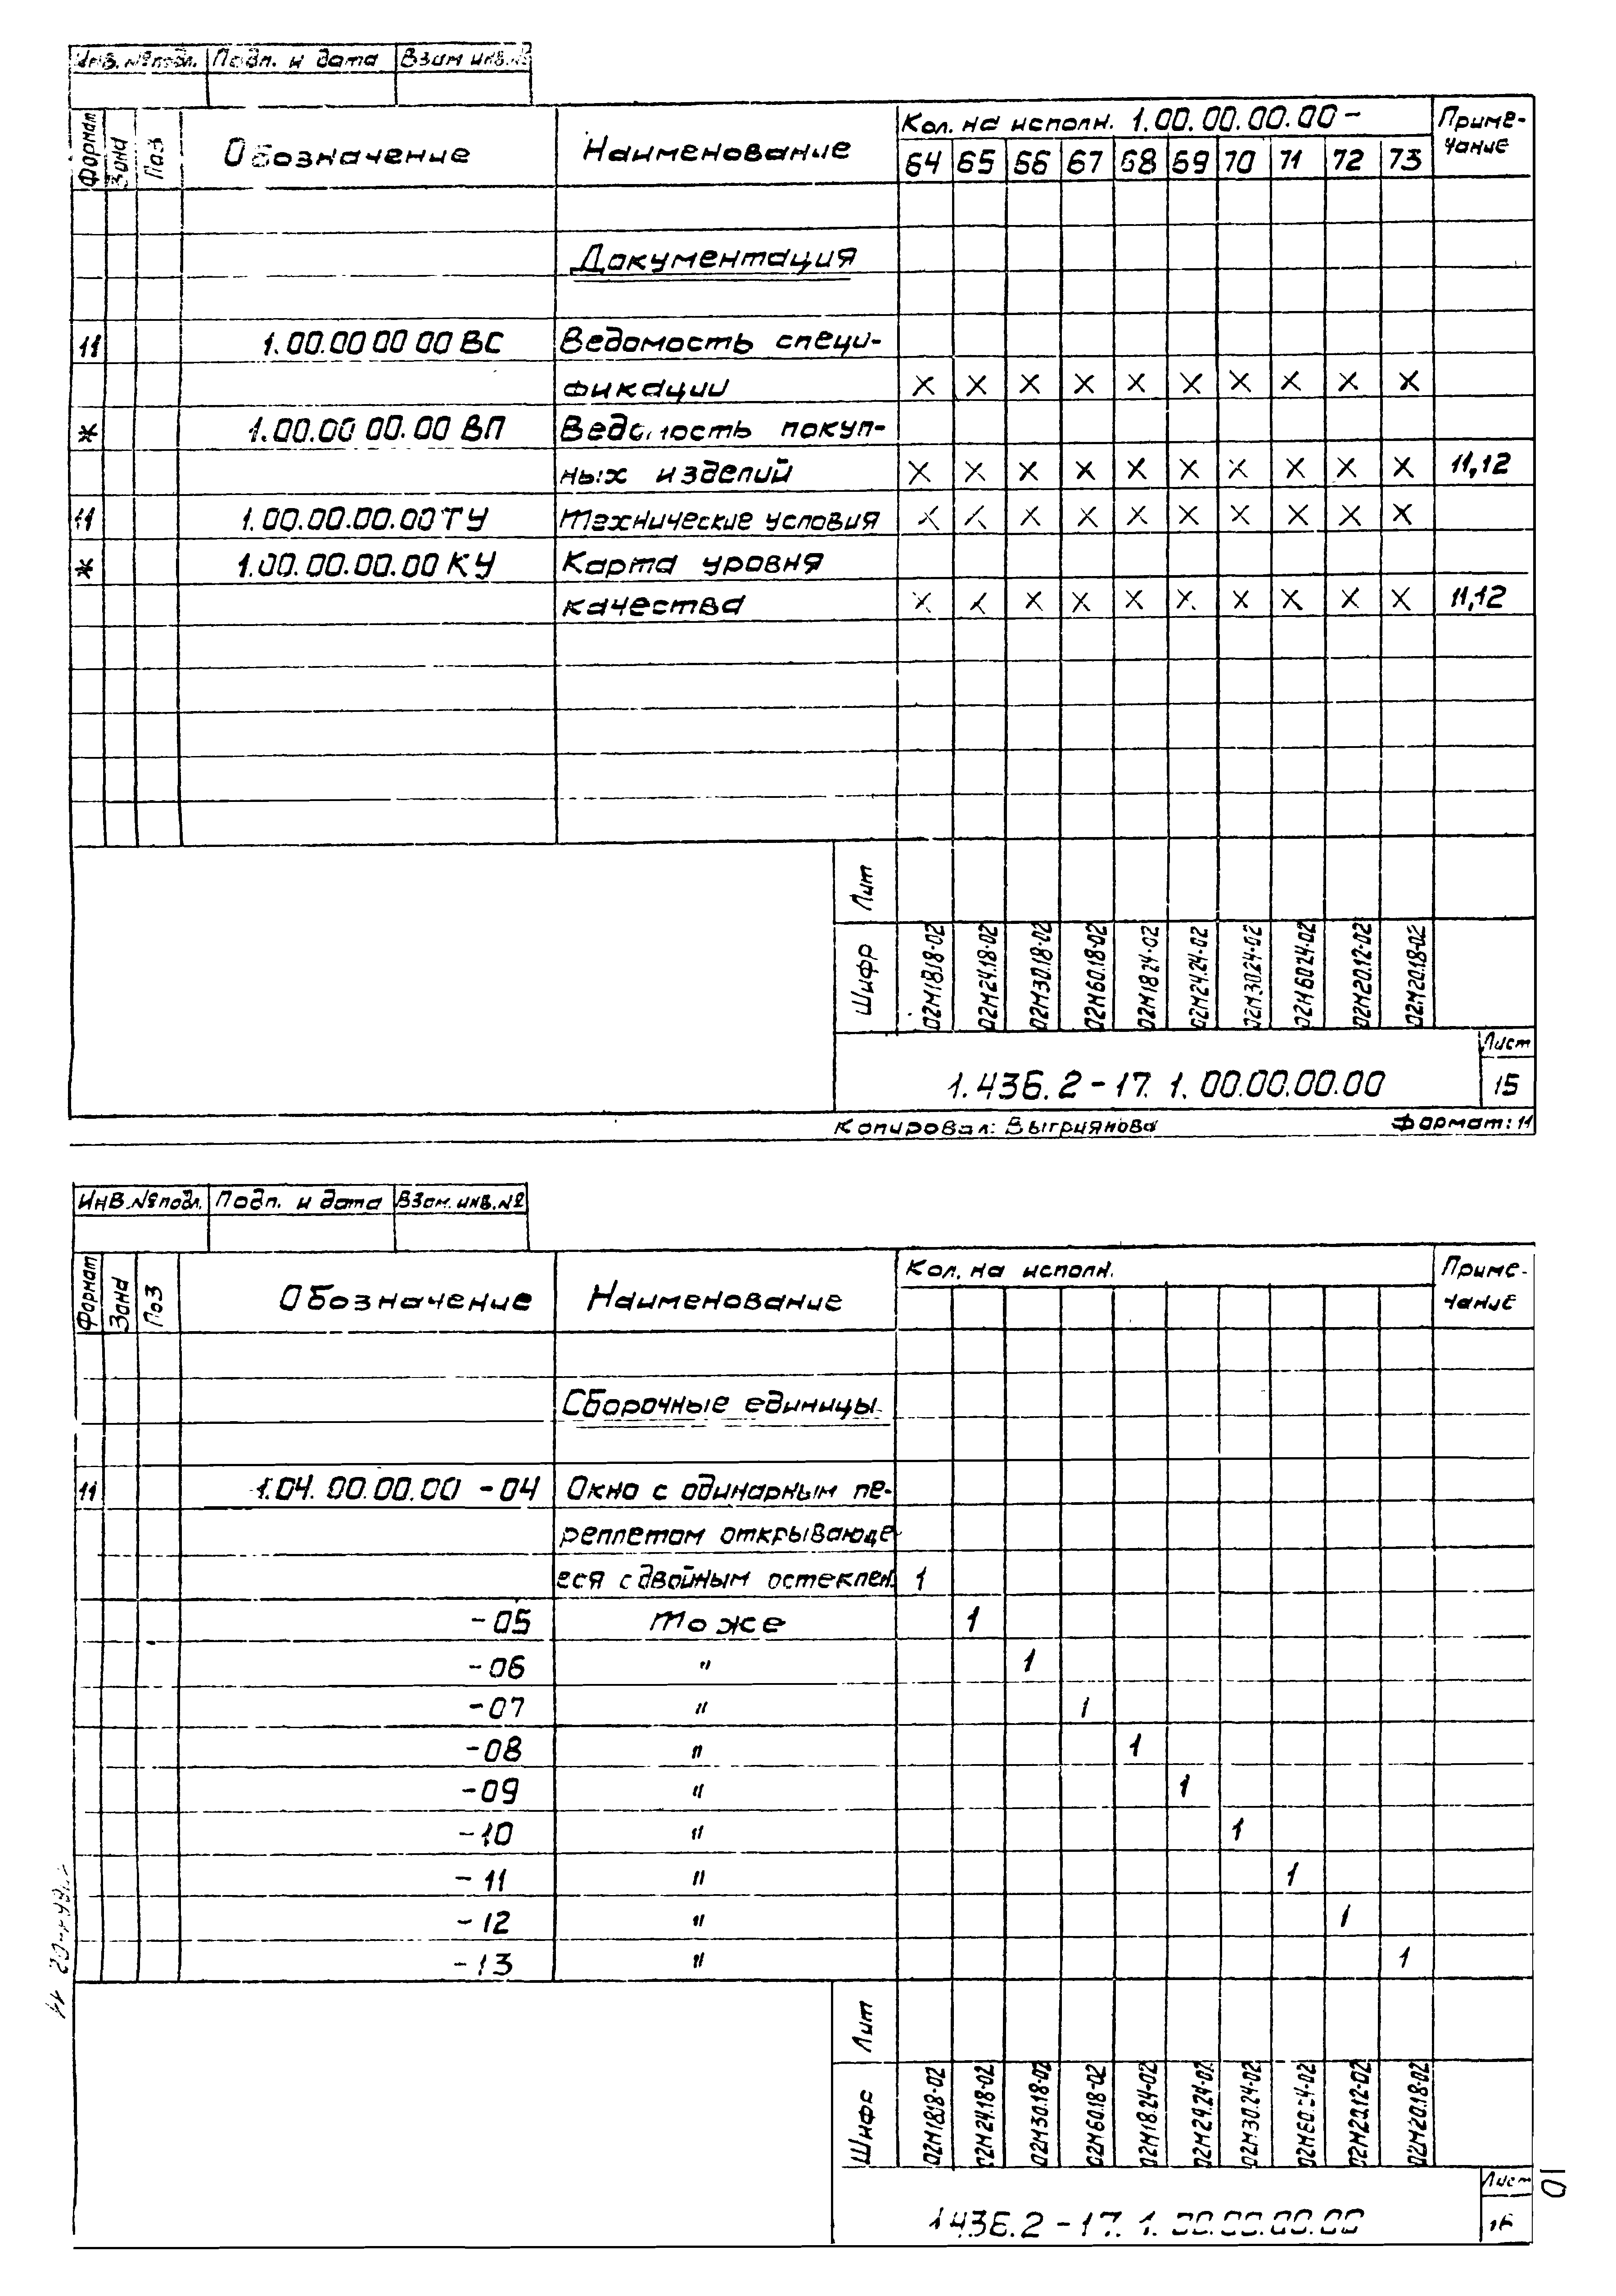 Инв. № подл. Подп. и дата Взам инв. №
Формат Зона Поз Обозначение Наименование Кол. на исполн. 1.00.00.00.00- Приме-
чание
64 65 66 67 68 69 70 71 72 73
Документация
11 1.00.00 00 00 ВС Ведомость специ-
фикации X X X X X X X X X X
* 1.00.00 00.00 ВП Ведомость покуп-
ных изделий X X X X X X X X X X 11,12
11 1.00.00.00.00 ТУ Технические условия X X X X X X X X X X
* 1.00.00.00.00 КУ Карта уровня
качества X X X X X X X X X X 11,12
Лит
Шифр 02М18.18-02 02М24.18-02 02М30.18-02 02М60.18-02 02М18.24-02 02М24.24-02 02М30.24-02 02М60.24-02 02М20.12-02 02М20.18-02
Лист
1.436.2-17. 1. 00.00.00.00 15
Копировал: Выгриянова Формат: 11
Инв. № подл. Подп. и дата Взам. инв. №
Формат Зона Поз Обозначение Наименование Кол. на исполн. Приме-
чание
Сборочные единицы
11 1.04.00.00.00 -04 Окно с одинарным пе-
реплетом открывающе
еся с двойным остеклен. 1
-05 То же 1
-06 " 1
-07 " 1
-08 " 1
-09 " 1
-10 " 1
-11 " 1
-12 " 1
-13 " 1
Лит
Шифр 02М18.18-02 02М24.18-02 02М30.18-02 02М60.18-02 02М18.24-02 02М24.24-02 02М30.24-02 02М60.24-02 02М20.12-02 02М20.18-02
Лист
1.436.2-17. 1. 00.00.00.00 16
10